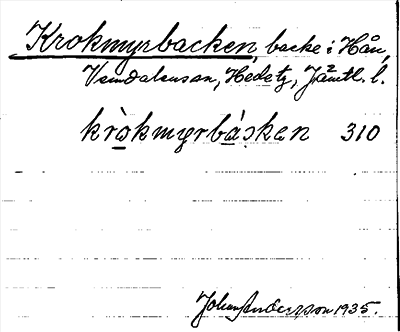 Krokmyrbacken, backe i Hån,
Vemdalens sn, Hedetg, Jämtl. l.
krò̱kmyrbá̱cken 310
Johan Andersson 1935.